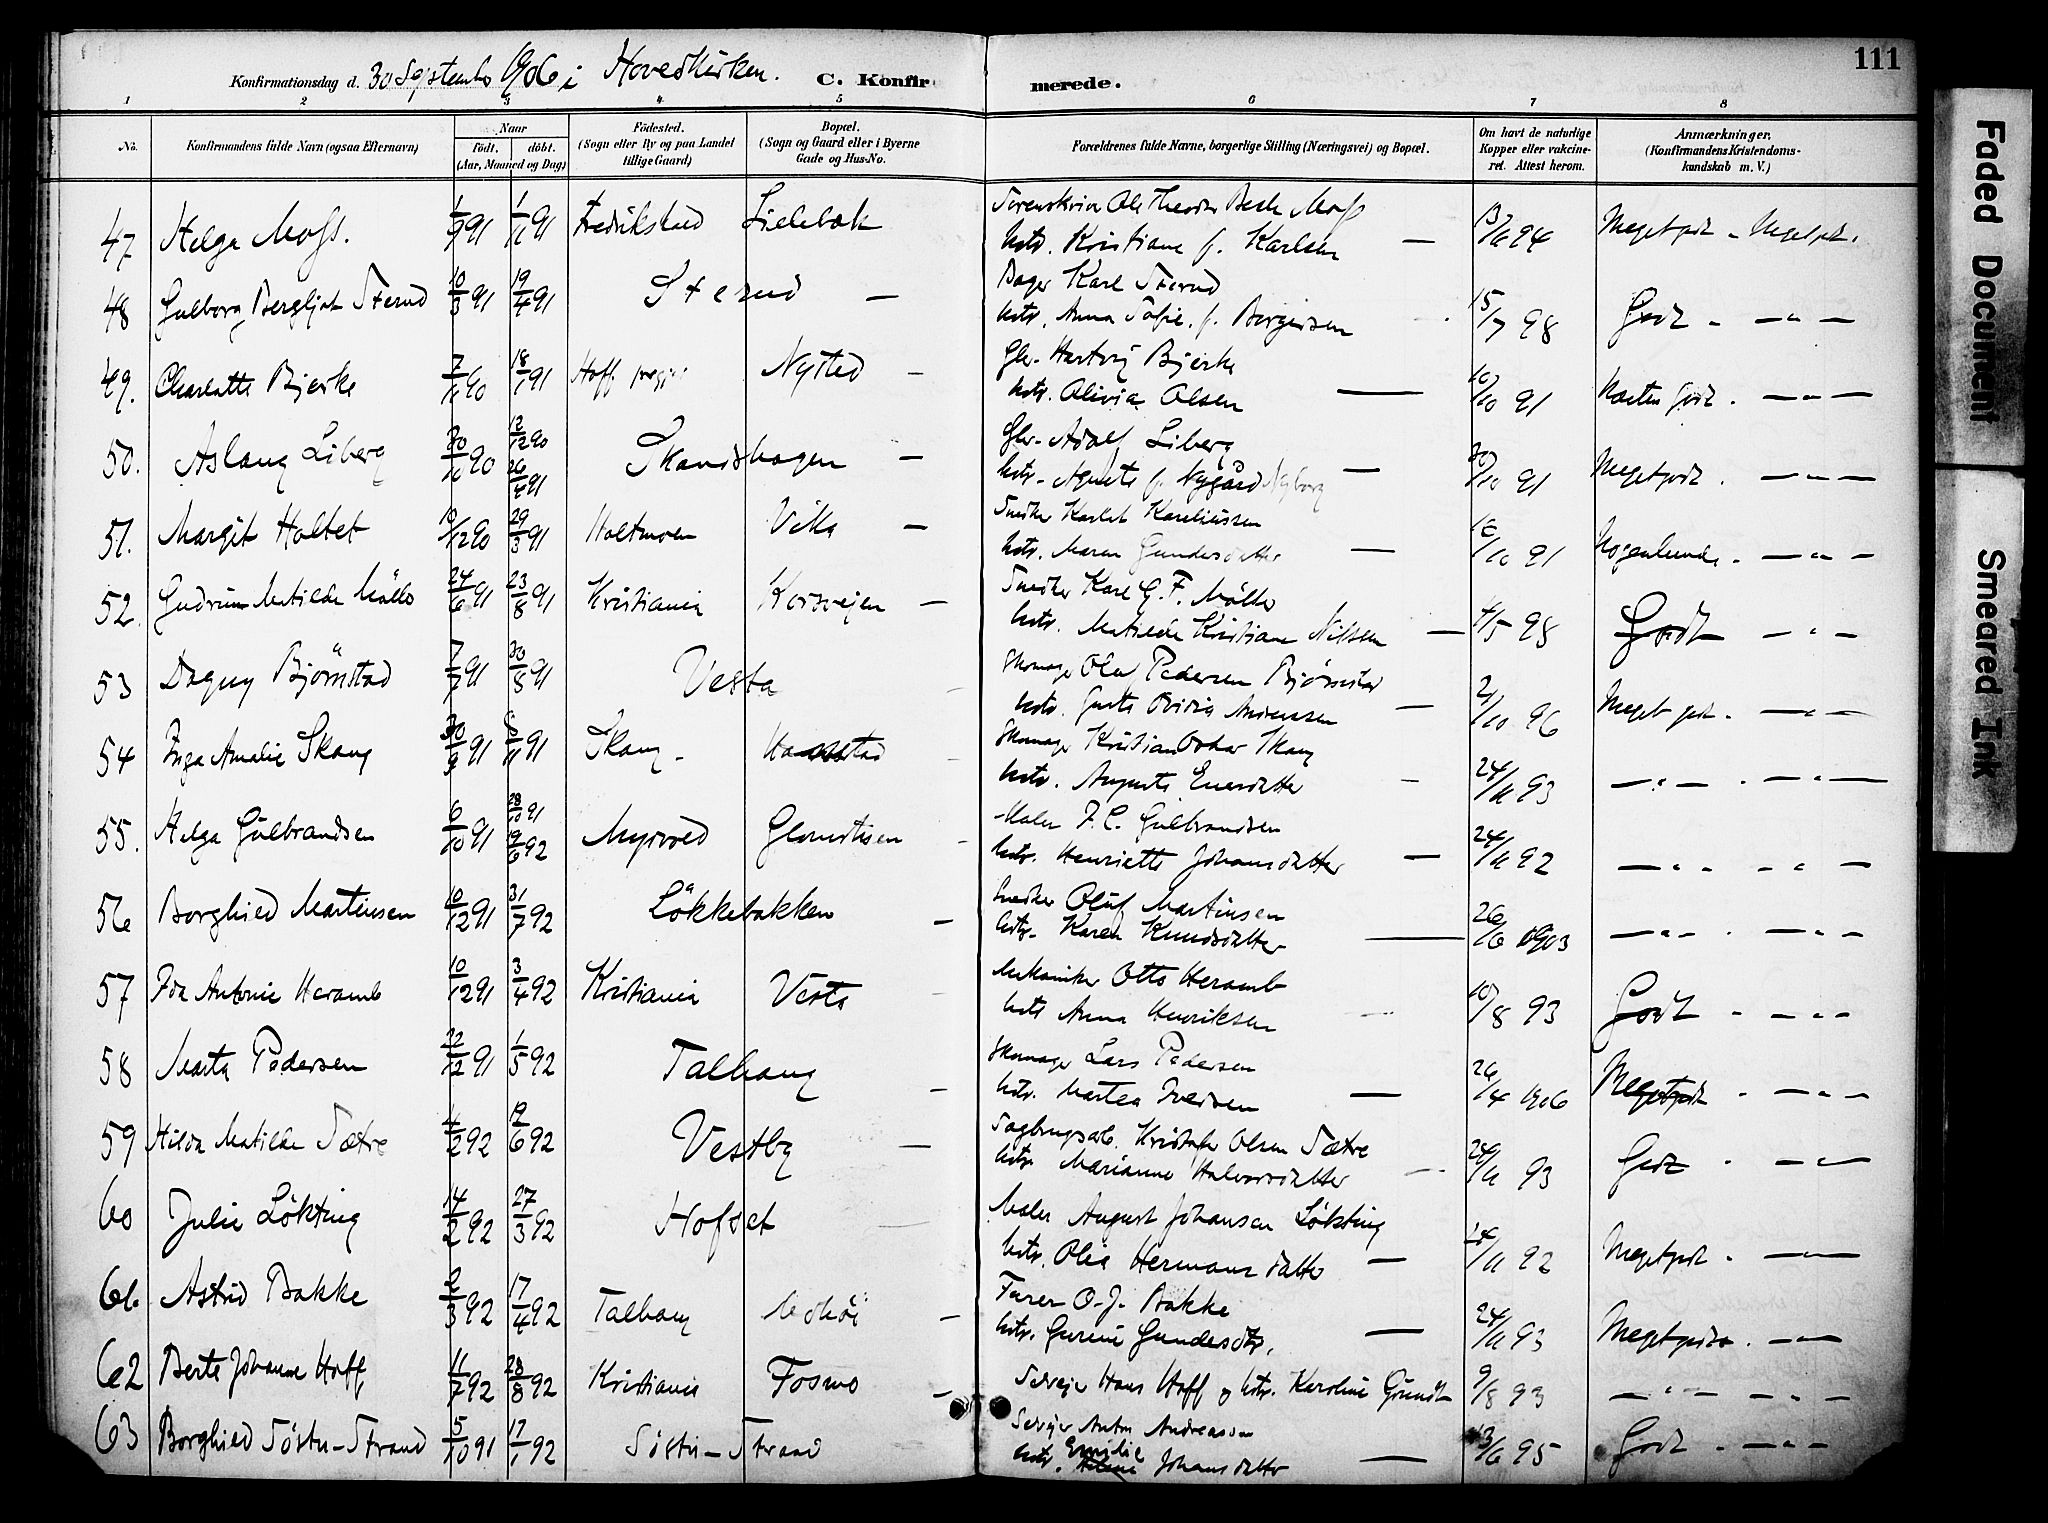 111
Konfirmationsdag d. 30 September 1906 i Hovedkirken. C. Konfirmerede.
1 2 3 4 5 6 7 8
No. Konfirmandens fulde Navn (ogsaa Efternavn) Naar født. døbt. (Aar, Maaned og Dag) Fødested. (Sogn eller By og paa Landet tillige Gaard) Bopæl. (Sogn og Gaard eller i Byerne Gade og Hus-No. Forældrenes fulde Navne, borgerlige Stilling (Næringsvei) og Bopæl. Om havt de naturlige Kopper eller vakcineret. Attest herom. Anmærkninger. (Konfirmandens Kristendomskundskab m. V.)
47 Helga Moss. 1/9 91 1/11 91 Fredrikstad Lillebæk Sorenskriver Ole Theodor Bech Moss
hstr. Kristiane f. Karlsen — 13/6 94 Meget godt - Meget godt.
48 Gulborg Bergljot Sterud 10/3 91 19/4 91 Sterud — Bager Karl Sterud
hstr. Anna Sofie f. Borgersen 15/7 98 Godt - — " —
49. Charlotte Bjerke 7/11 90 18/1 91 Hoff Nysted — Gbr. Hartvig Bjerke
hstr. Olivia Olsen — 10/10 91 Næsten godt. — " —
50. Aslaug Liberg 30/10 90 12/12 90 26/4 91 Skandshagen — Gbr. Adolf Liberg
hstr. Agnete f. Nygård Nyborg — 30/10 91 Meget godt. — " —
51. Margit Holtet 10/12 90 29/3 91 Holtmoen Vika — Snedker Karelius
hstr. Maren Gundersdatter — 10/10 91 Nogenlunde - — " —
52. Gudrun Matilde Møller 24/6 91 23/8 91 Kristiania Korsvejen — Snedker Karl G. F. Møller
hstr. Matilde Kristiane Nilsen — 4/5 98 Godt — " —
53 Dagny Bjørnstad 7/7 91 30/8 91 Vesta Skomager Olaf Pedersen Bjørnstad
hstr. Gusta Andersen — 2/10 96 Meget godt. — " —
54 Inga Amalie Skaug 30/9 91 8/11 91 Skaug - Skomager Kristian Oskar Skaug
hstr. Augusta Enersdatter — 24/11 93 — " — . — " —
55. Helga Gulbrandsen 6/10 91 28/10 91 19/6 92 Myrvold Glomstuen Maler J. C. Gulbrandsen
hstr. Henriette Johansdatter — 24/11 92 — " — — " —
56 Borghild Martinsen 10/12 91 31/7 92 Løkkebakken — Snedker Oluf Martinsen
hstr. Karen Knudsdatter — 26/6 1903 — " — . — " —
57 Ida Antonie Heramb 10/12 91 3/4 92 Kristiania Vesta Mekaniker Otto Heramb
hstr. Anna Henriksen 10/8 93 Godt - — " —
58 Marta Pedersen 22/12 91 1/5 92 Talhaug — Skomager Lars Pedersen
hstr. Martea Iversen — 26/4 1906 Meget godt. — " —
59 Hilda Matilde Sætre 4/2 92 12/6 92 Vestby — Sagbrugsarb. Kristofer Olsen Sætre
hstr. Marianne Halvorsdatter 24/11 93 Godt. — " —
60 Julie Løkting 14/2 92 27/3 92 Hofset — Maler August Johansen Løkting
hstr. Olia Hermansdatter — 24/11 92 Meget godt. — " —
61. Astrid Bakke 2/3 92 17/4 92 Talhaug Mohøi — Furer O. J. Bakke
hstr. Gurine Gundersdtr. — 24/11 93 Meget godt. — " —
62 Berte Johanne Hoff 11/7 92 28/8 92 Kristiania Fosmo — Selvejer Hans Hoff og hstr. Karoline Grundt 9/8 93 — " — — " —
63 Borghild Søstu-Strand 5/10 91 17/1 92 Søstu-Strand Selvejer Anton Andreassen
hstr. Emilie Johansdatter — 13/6 95 Godt. — " —
Faded Document
Smeared Ink